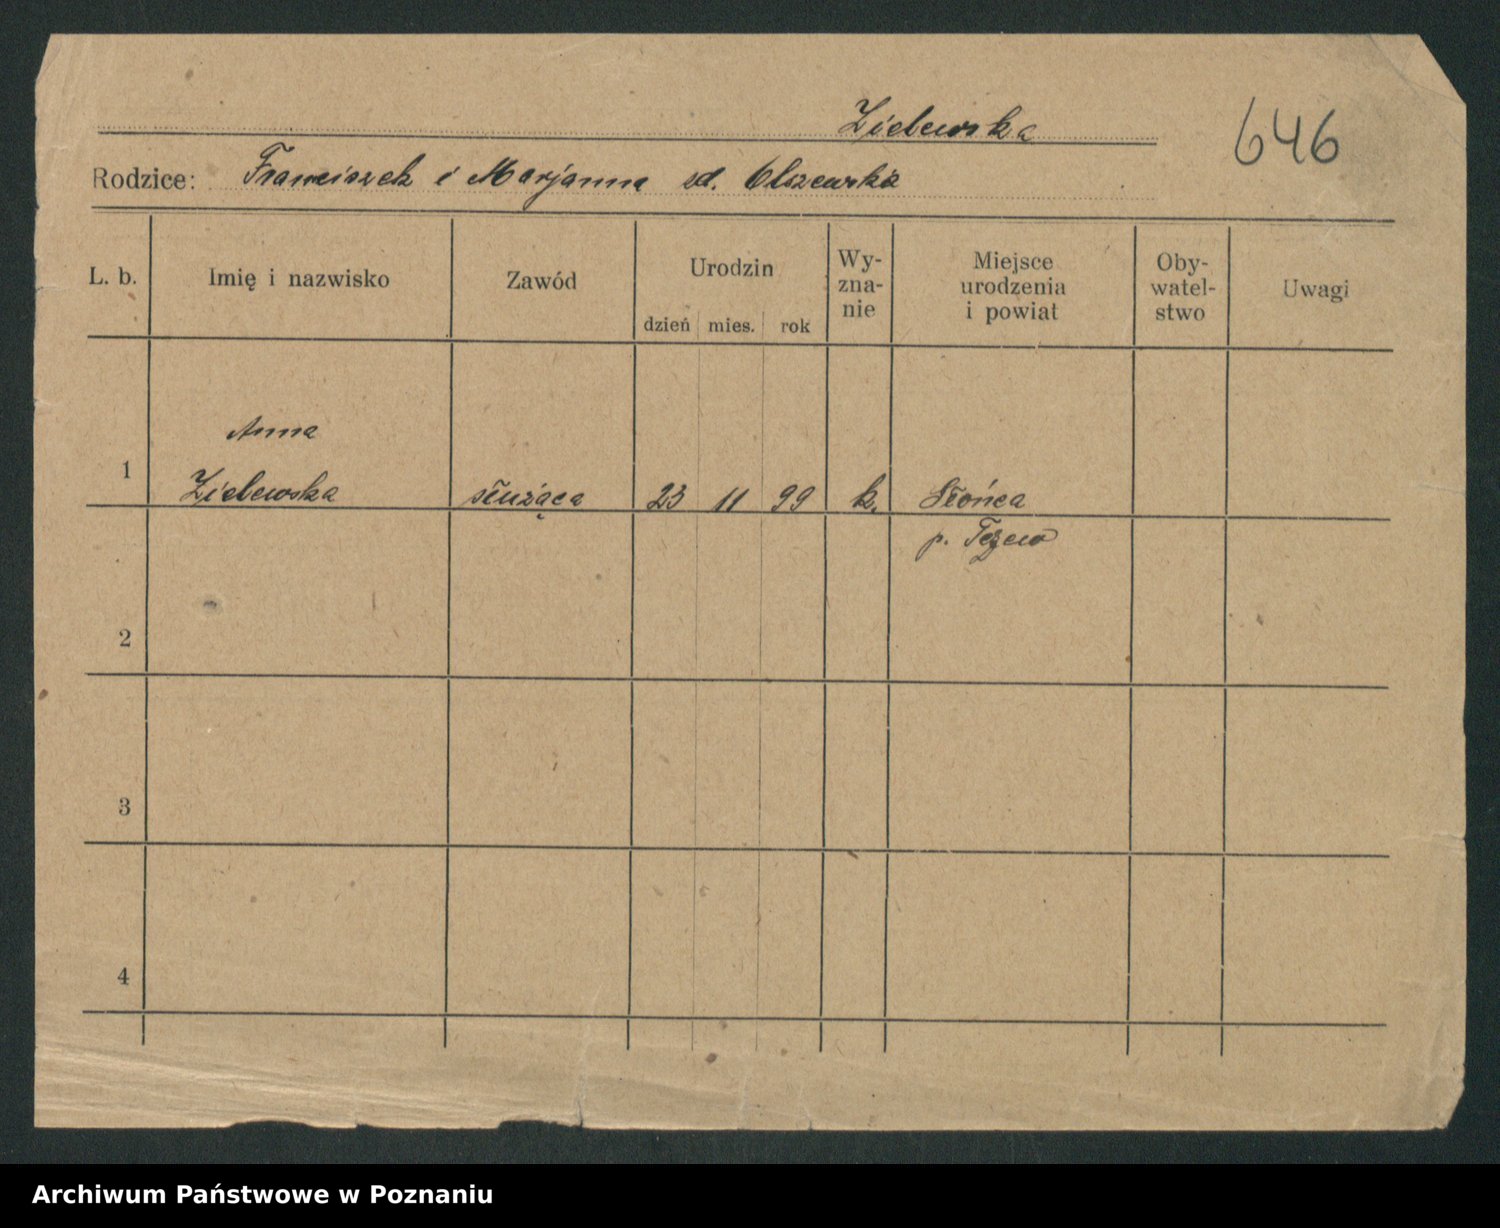 Zielewska
646
Rodzice: Franciszek i Marjanna zd. Olszewska
L. b. Imię i nazwisko Zawód Urodzin dzień mies. rok Wy-zna-nie Miejsce urodzenia i powiat Oby-watel-stwo Uwagi
Anna
1 Zielewska służąca 23 11 99 k. Słońca
p. Tczew
2
3
4
Archiwum Państwowe w Poznaniu